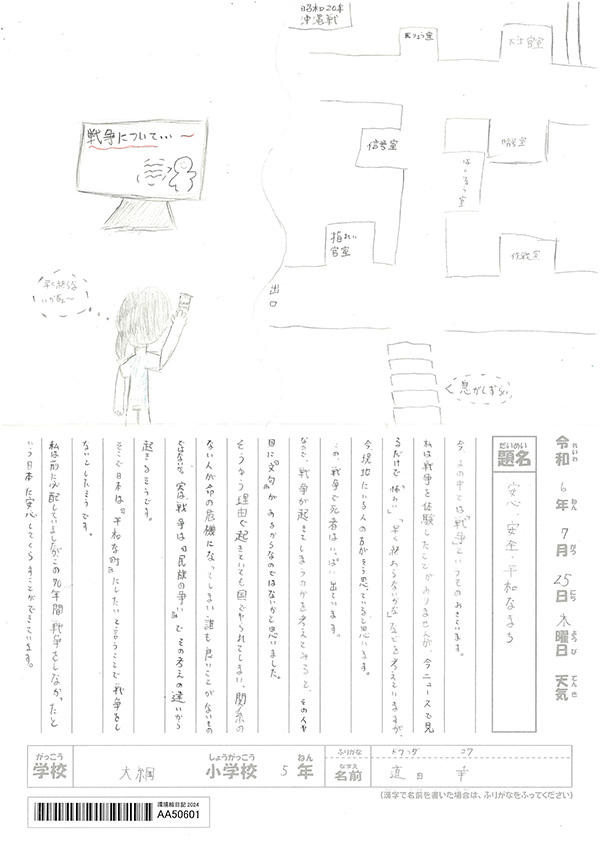 昭和20年
沖縄戦
医りょう室
信号室
暗号室
作戦室
指れい
官室
出口
息がしずらい
戦争について…〜
早く終らな
いかなぁ〜
令和6年7月25日木曜日 天気
れいわ ねん がつ にち ようび てんき
だいめい
題名
安心・安全・平和なまち
今、よの中では「戦争」というものがおきています。
私は戦争を体験したことがありませんが、今ニュースで見
るだけで「怖い」「早く終わらないかな」などを考えていますが、
今、現地にいる人の方がそう思っていると思います。
この、戦争で死者はいっぱい出ています。
なので、戦争が起きてしまうのかを考えてみると、その人や
国に『文句』があるからなのではないかと思いました。
そうゆう理由で起きていても国でやられてしまい、関係の
ない人が命の危機になってしまい誰も良いことがないもの
ではないか。実は、戦争は『民族の争い』でその考えの違いから
起きるそうです。
そこで日本は、『平和な町』にしたいと言うことで戦争をし
ないとしたそうです。
私は前に心配していましたが、この70年間、戦争をしなかったと
いう日本に安心してくらすことができています。
がっこう
学校
大綱
しょうがっこう
小学校
5
ねん
年
ふりがな
なまえ
名前
(漢字で名前を書いた場合は、ふりがなをふってください)
環境絵日記2024
AA50601